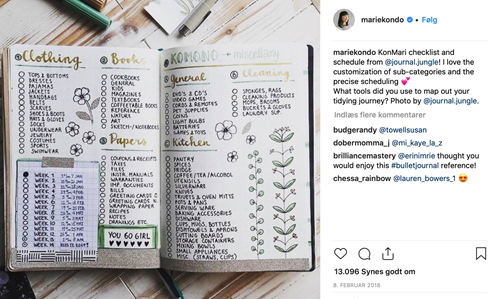 ① Clothing
TOPS & BOTTOMS
DRESSES
PAJAMAS
JACKETS
HANDBAGS
BELTS
SCARVES
SHOES & BOOTS
HATS & GLOVES
SOCKS
UNDERWEAR
JEWELRY
COSTUMES
SPORTS
SWIMWEAR
WEEK 1
WEEK 2
WEEK 3
WEEK 4
WEEK 5
WEEK 6
WEEK 7
WEEK 8
WEEK 9
WEEK 10
WEEK 11
WEEK 12
WEEK 13
WEEK 14
② Books
COOKBOOKS
GENERAL
KIDS
MAGAZINES
TEXTBOOKS
COFFEETABLE BOOKS
REFERENCE
NATURE
ART
SKETCH/NOTEBOOKS
③ Papers
COUPONS & RECEIPTS
TAXES
FILES
INSTR. MANUALS
WARRANTIES
IMP. DOCUMENTS
BILLS
GREETING CARDS
GREETING CARDS
WRAPPING PAPER
RECIPES
NOTES
DRAWINGS ETC.
YOU GO GIRL
KOMONO → miscellany
General
DVD'S & CD'S
VIDEO GAMES
CORDS & REMOTES
PET SUPPLIES
COINS
LIGHT BULBS
BATTERIES
GAMES & TOYS
Cleaning
SPONGES, RAGS
CLEANING PRODUCTS
MOPS, BROOMS
BUCKETS & GLOVES
LAUNDRY SUP.
Kitchen
PANTRY
SPICES
FRIDGE
COFFEE/TEA/ALCOHOL
UTENSILS
SILVERWARE
KNIVES
TRIVETS & OVEN MITTS
POTS & PANS
SERVING WARE
BAKING ACCESSORIES
DISHWARE
CUPS, MUGS, BOTTLES
DISHTOWELS & APRONS
CUTTING BOARDS
STORAGE CONTAINERS
MIXING BOWLS
SMALL APPLIANCES
MISC. (STRAWS, CLIPS)
mariekondo • Følg
mariekondo KonMari checklist and
schedule from @journal.jungle! I love the
customization of sub-categories and the
precise scheduling 💕
What tools did you use to map out your
tidying journey? Photo by @journal.jungle.
Indlæs flere kommentarer
budgerandy @towellsusan
dobermomma_j @mi_kaye_la_z
brilliancemastery @erinimrie thought you
would enjoy this #bulletjournal reference!
chessa_rainbow @lauren_bowers_1 😍
13.096 Synes godt om
8. FEBRUAR 2018